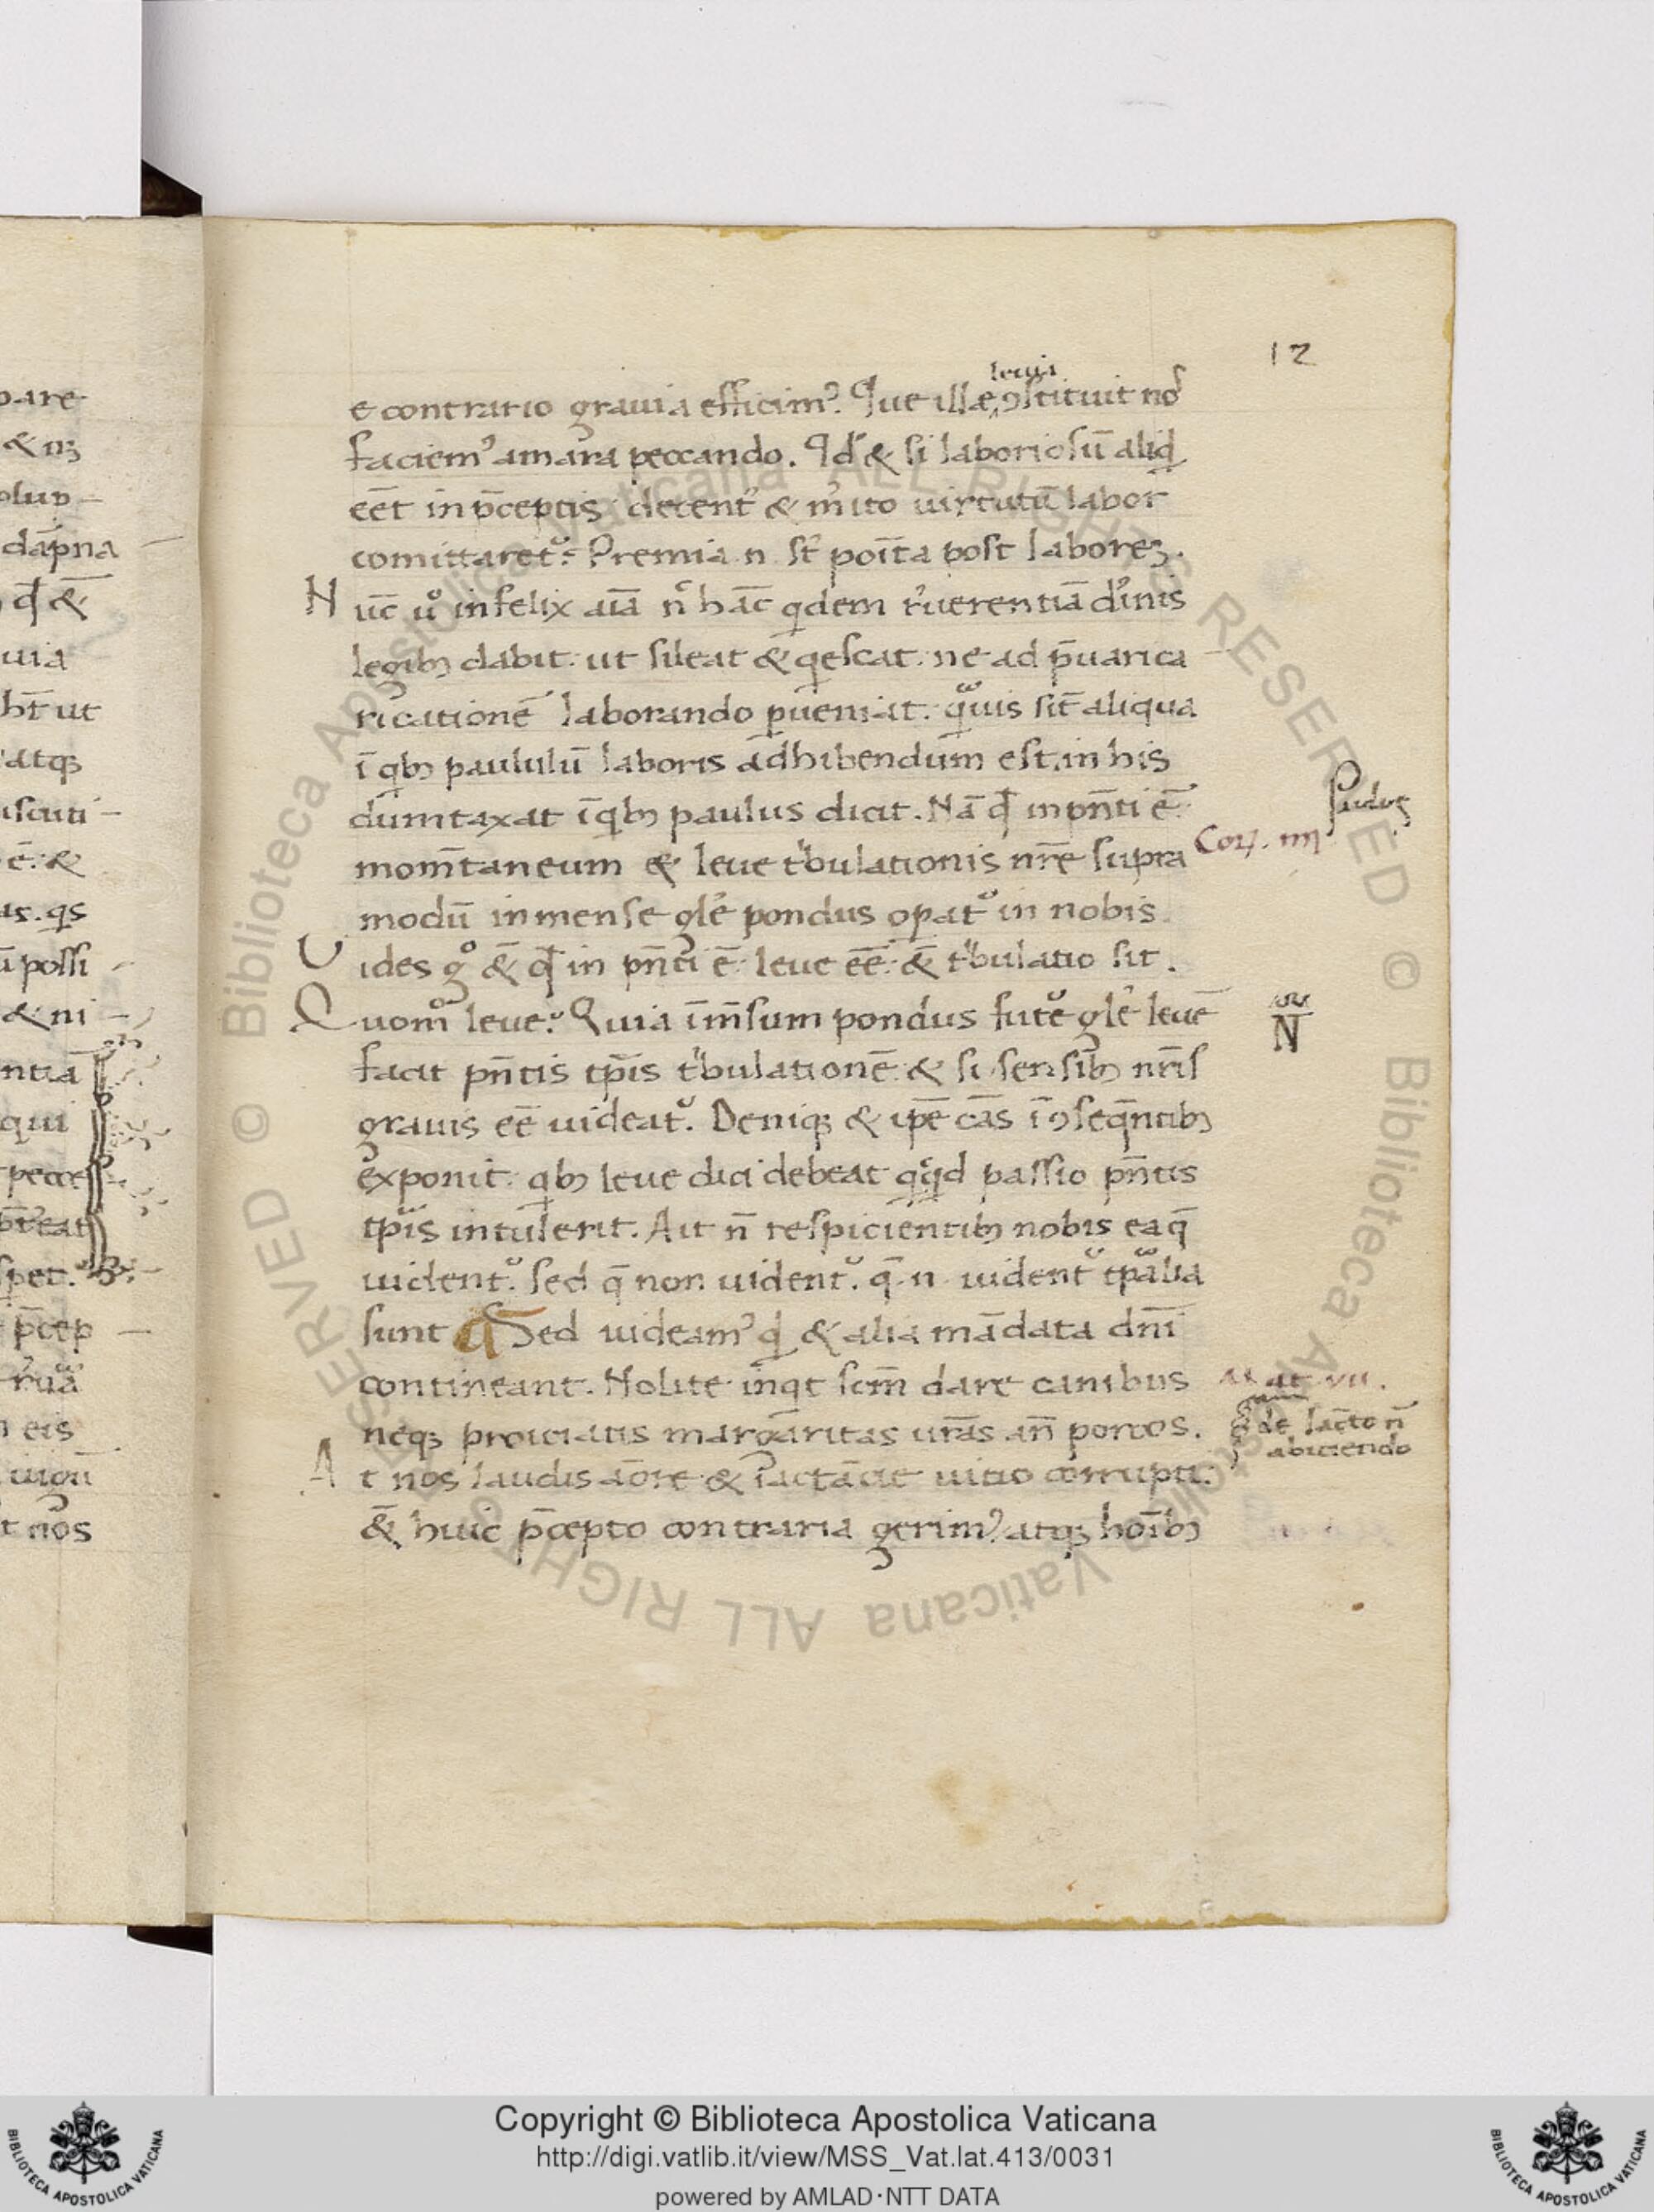 12
leuia
e contrario grauia efficimꝰ. Que ille ꝯstituit nos
faciemꝰ amara peccando. Qd̓ & si laboriosū aliq̇d
eēt in p̄ceptis: decent̓ & m̓ito uirtutū labor
comittaret᷑. Premia .n. st̄ poīta post labores.
Nūc u̓o infelix aīa nͨ hāc qͥdem r̓uerentiā diuīnis
legibꝫ dabit: ut sileat & qͥescat: ne ad p̄uarica
ricationē laborando ꝑueniat. qͣuis sīt aliqua
ī qͥbꝫ paululū laboris adhibendum est. in his
dumtaxat ī qͥbꝫ paulus dicit. Nā qđ in pn̄ti ē:
mom̄taneum & leue tͥbulationis nr̄e supra
modū inmense gl̓e pondus opat᷑ in nobis.
Vides gͦ & qđ in pn̄ti ē: leue eē: & tͥbulatio sit.
Quomͦ leue? Quia īm̄sum pondus futu᷑e gl̓e leuē
facit pn̄tis tp̄is tͥbulationē: & si sensibꝫ nr̄is
grauis eē uideat᷑. Deniqꝫ & ip̄e cās ī ꝯseqn̄tibꝫ
exponit: qͥbꝫ leue dici debeat qͥcqͥd passio pn̄tis
tp̄is intulerit. Ait n̄ respicientibꝫ nobis ea q̄
uident᷑. sed q̄ non uident᷑. q̄ .n. uident᷑ tp̄alia
sunt Sed uideamꝰ qͥd & alia mādata dn̄i
contineant. Nolite inqͥt scm̄ dare canibus
neqꝫ proiciatis margaritas ur̄as an̄ porcos.
At nos laudis aōre & iactācie uitio corrupti:
& huic p̄cepto contraria gerimꝰ. atqꝫ hoībꝫ
Paulus
Cor. IIII
N
Mat. VII.
de sācto n̄
abiciendo
pare
dāpna
uia
ut
atqꝫ
possi
& ni
ntiā
qui
p̄cep
eis
nos
Copyright © Biblioteca Apostolica Vaticana
http://digi.vatlib.it/view/MSS_Vat.lat.413/0031
powered by AMLAD·NTT DATA
BIBLIOTECA APOSTOLICA VATICANA
BIBLIOTECA APOSTOLICA VATICANA
© Biblioteca Apostolica Vaticana ALL RIGHTS RESERVED © Biblioteca Apostolica Vaticana ALL RIGHTS RESERVED